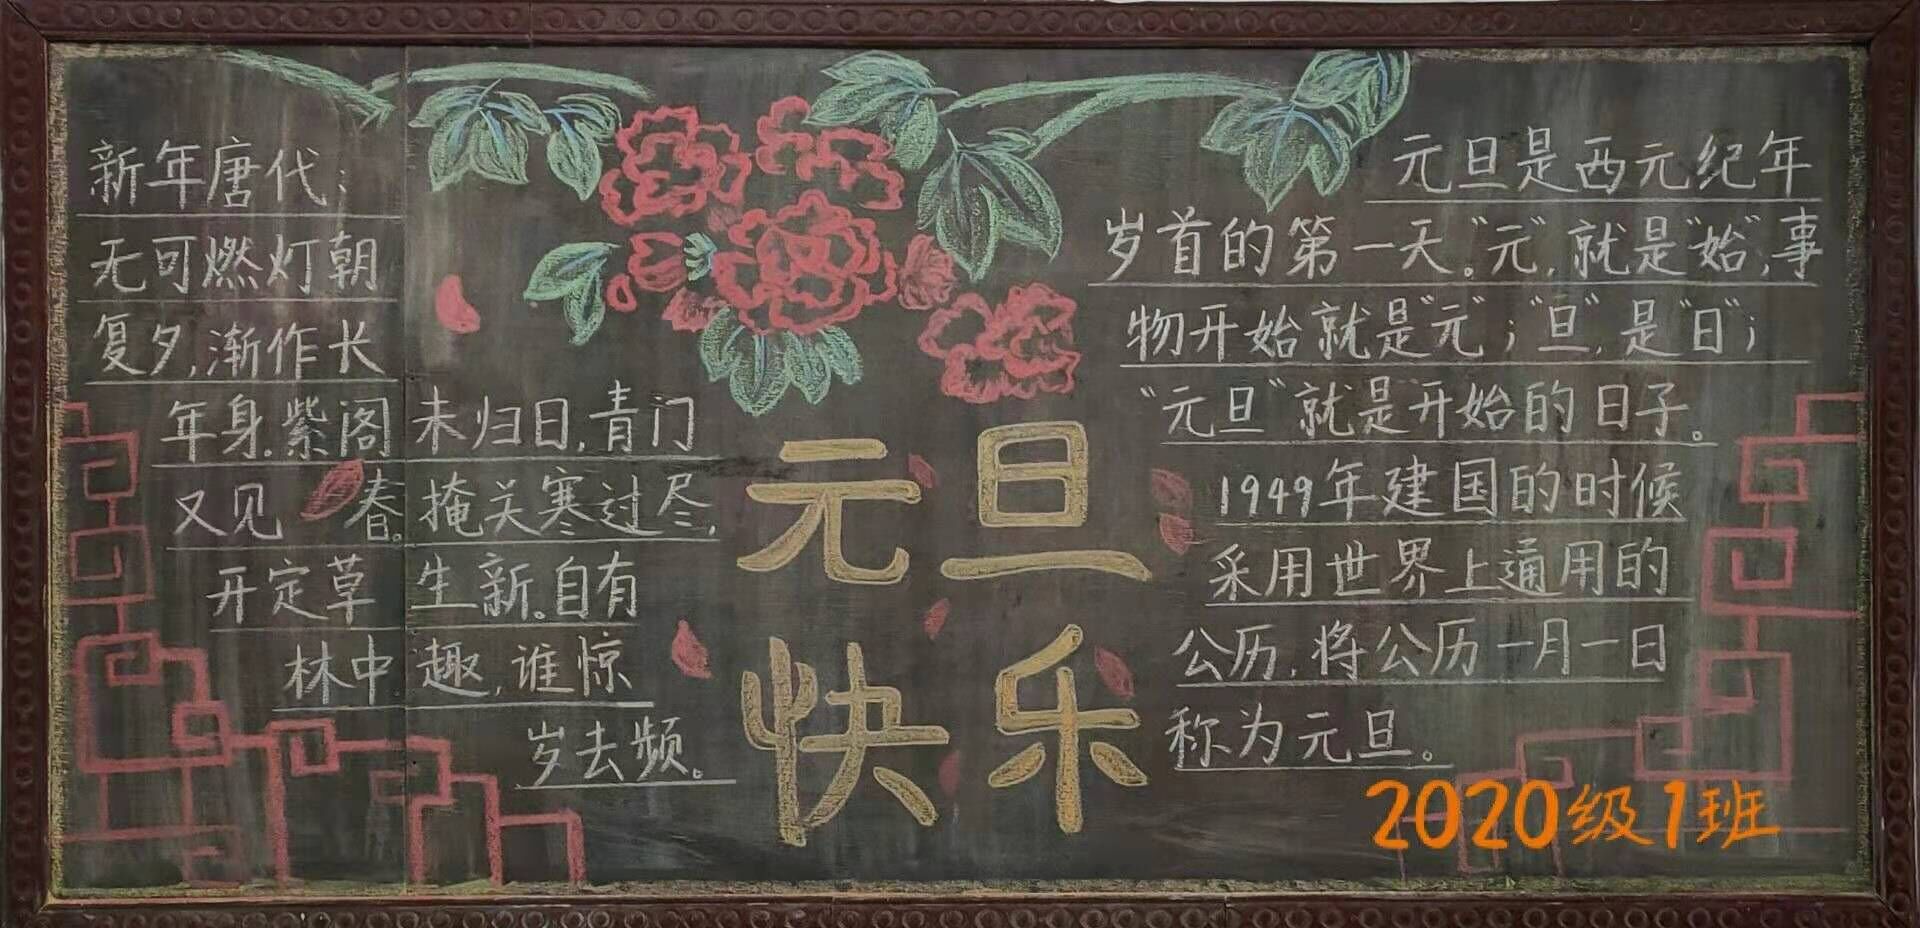 新年唐代：
无可燃灯朝
复夕,渐作长
年身.紫阁未归日,青门
又见春。掩关寒过尽,
开定草生新。自有
林中趣,谁惊
岁去频。
元旦
快乐
元旦是西元纪年
岁首的第一天。“元”,就是“始”,事
物开始就是“元”；“旦”,是“日”；
“元旦”就是开始的日子。
1949年建国的时候
采用世界上通用的
公历,将公历一月一日
称为元旦。
2020级1班